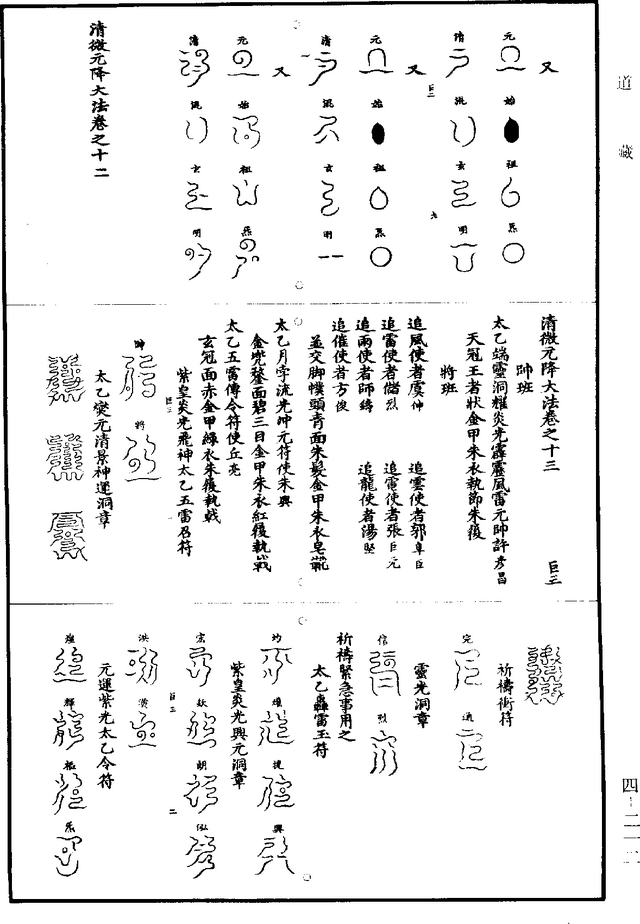 道藏
又
元 始 祖 炁
清 混 玄 明
又
元 始 祖 炁
清 混 玄 明
又
元 始 祖 炁
清 混 玄 明
清微元降大法卷之十二
清微元降大法卷之十三 巨三
帥班
太乙端靈洞耀炎光霹靂風雷元帥許彥昌
天冠王者狀金甲朱衣執節朱履
將班
追風使者虞仲 追雲使者郭阜臣
追雷使者儲烈 追電使者張巨元
追雨使者師鑄 追龍使者湯堅
追催使者方俊
並交脚幞頭青面朱髮金甲朱衣皂靴
太乙月孛流光沖元符使朱興
金兜鍪面碧三目金甲朱衣紅履執戟
太乙五雷傳令符使丘亮
玄冠面赤金甲綠衣朱履執戟
紫皇炎光飛神太乙五雷召符
帥 將
太乙變元清景神運洞章
祈禱術符
完 通
靈光洞章
信 烈
祈禱緊急事用之
太乙轟雷玉符
紫皇炎光興元洞章
宏 欽 朗 泓
洪
元運紫光太乙令符
煌 輝 極 炁
四-二一二